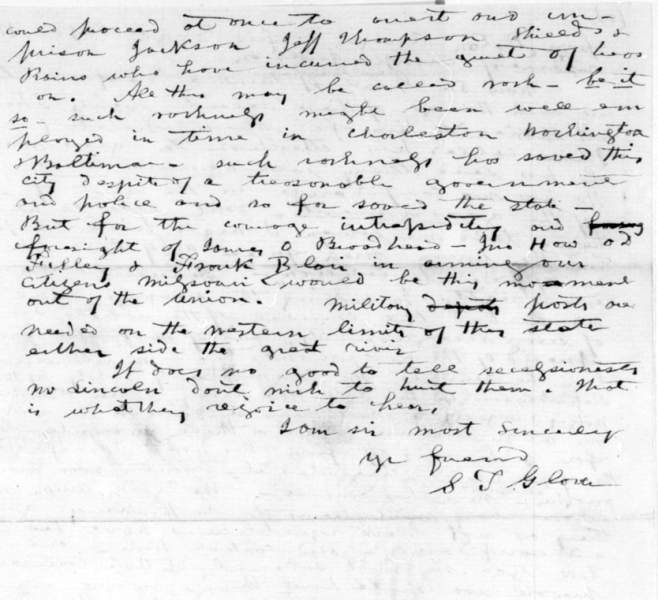 could proceed at once to arrest and im-
prison Jackson Jeff Thompson Shields &
Rains who have incurred the guilt of treas
on. All this may be called rash - be it
so - such rashness might been well em
ployed in time in Charleston Washington
& Baltimore - such rashness has saved this
city despite of a treasonable government
and police and so far saved the state -
But for the courage intrepidity and
foresight of James O Broadhead - Jno How O D
Filley & Frank Blair in arming our
citizens Missouri would be this moment
out of the Union. Military posts are
needed on the western limits of this state
either side the great river
It does no good to tell secessionests
Mr Lincoln dont wish to hurt them. That
is what they rejoice to hear,
I am sir most sincerely
yr friend
S T Glover